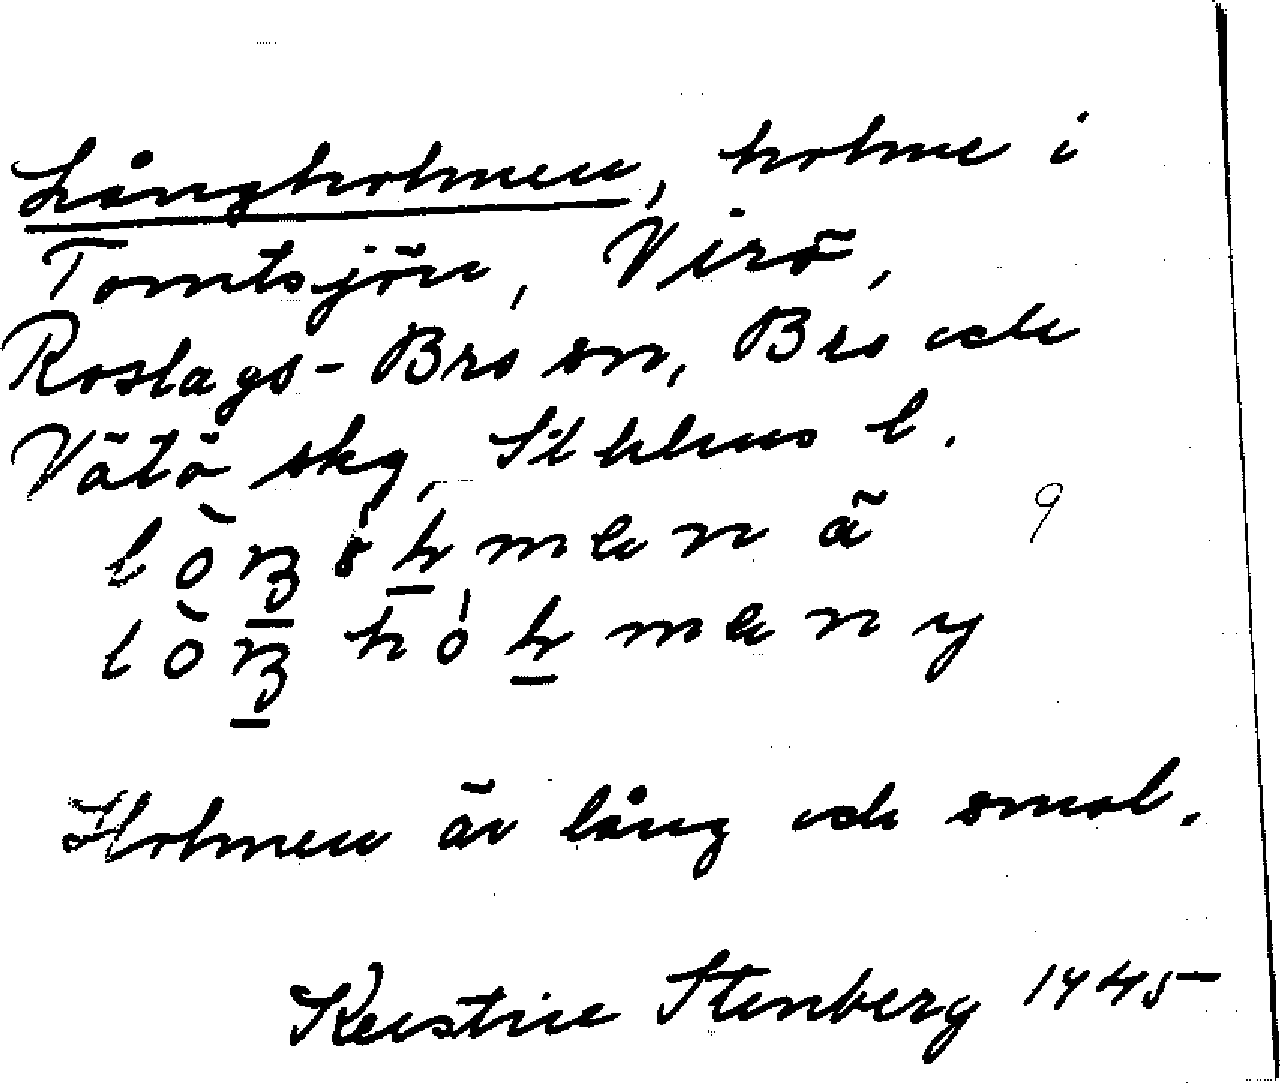 Långholmen, holme i
Tomtsjön, Virö,
Roslags-Bro sn, Bro och
Vätö skg, Sthlms l.
9
Holmen är lång och smal.
Kerstin Stenberg 1945